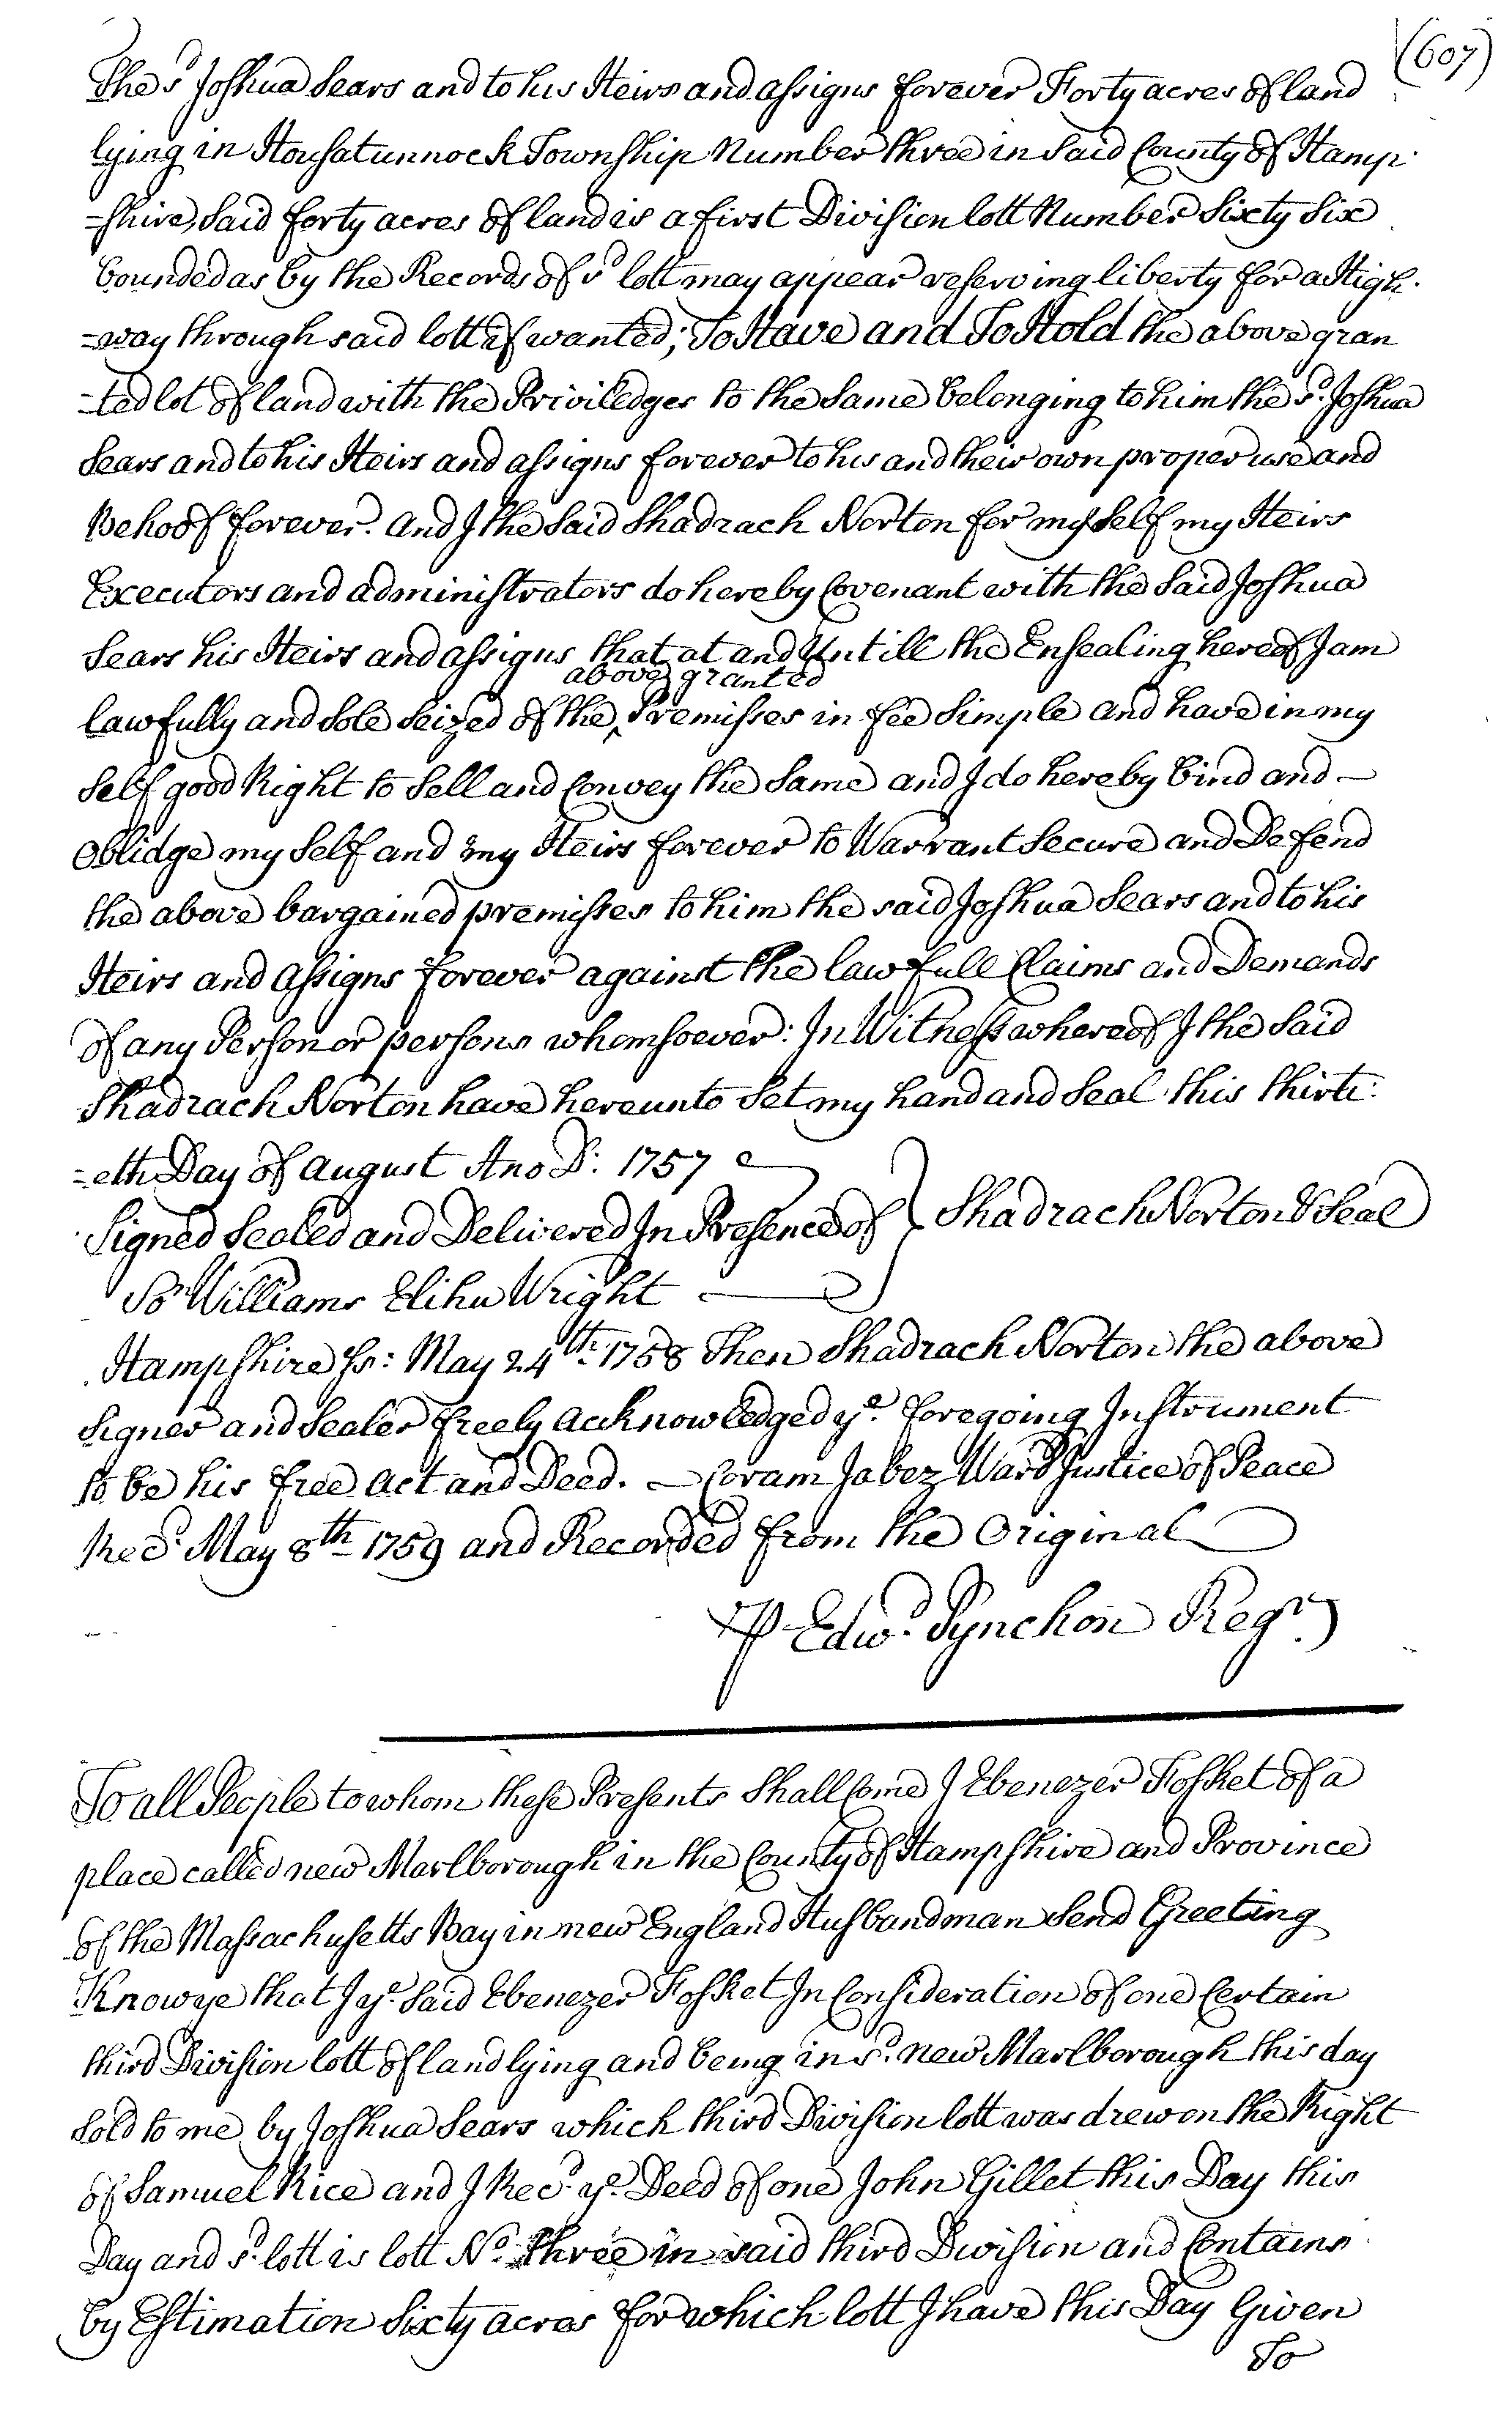 (607)
The sd Joshua Sears and to his Heirs and assigns forever Forty acres of land
lying in Housatunnock Township Number three in Said County of Hamp
=shire, Said forty acres of land is a first Division lott Number Sixty Six
bounded as by the Records of sd lott may appear reserving liberty for a High
=way through said lott if wanted; To Have and To Hold the above gran
=ted lot of land with the Priviledges to the Same belonging to him the sd. Joshua
Sears and to his Heirs and assigns forever to his and their own proper use and
Behoof forever. And I the Said Shadrach Norton for my Self my Heirs
Executors and administrators do hereby Covenant with the Said Joshua
Sears his Heirs and assigns that at and Untill the Ensealing hereof I am
above granted
lawfully and Sole Seized of the ‸ Premisses in fee Simple and have in my
Self good Right to Sell and Convey the Same and I do hereby bind and —
Oblidge my Self and my Heirs forever to Warrant Secure and Defend
the above bargained premisses to him the said Joshua Sears and to his
Heirs and Assigns forever against the lawfull Claims and Demands
of any Person or persons whomsoever: In Witness whereof I the Said
Shadrach Norton have hereunto Set my hand and Seal this thirti:
=eth Day of August Ano D: 1757
Signed Sealed and Delivered In Presence of } Shadrach Norton & Seal
So Williams Elihu Wright
Hampshire Ss: May 24th 1758 Then Shadrach Norton the above
Signer and Sealer freely Acknowledged ye. foregoing Instrument
to be his free Act and Deed. — Coram Jabez Ward Justice of Peace
Recd. May 8th 1759 and Recorded from the Original
P Edwd. Pynchon Regr.
To all People to whom these Presents Shall Come I Ebenezer Fosket of a
place called new Marlborough in the County of Hampshire and Province
of the Massachusetts Bay in new England Husbandman Send Greeting
Know ye that I ye. Said Ebenezer Fosket In Consideration of one Certain
third Division lott of land lying and being in sd. new Marlborough this day
Sold to me by Joshua Sears which third Division lott was drew on the Right
of Samuel Rice and I Recd. ye. Deed of one John Gillet this Day this
Day and sd. lott is lott No. three in said third Division and Contains
by Estimation Sixty acres for which lott I have this Day Given
To